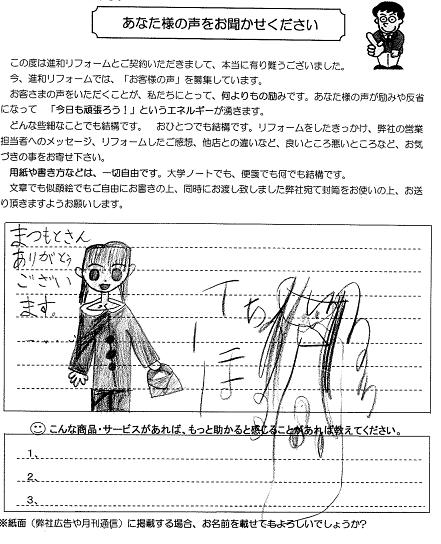 あなた様の声をお聞かせください
この度は進和リフォームとご契約いただきまして、本当に有り難うございました。
今、進和リフォームでは、「お客様の声」を募集しています。
お客さまの声をいただくことが、私たちにとって、何よりもの励みです。あなた様の声が励みや反省
になって 「今日も頑張ろう！」というエネルギーが湧きます。
どんな些細なことでも結構です。 おひとつでも結構です。リフォームをしたきっかけ、弊社の営業
担当者へのメッセージ、リフォームしたご感想、他店との違いなど、良いところ悪いところなど、お気
づきの事をお寄せ下さい。
用紙や書き方などは、一切自由です。大学ノートでも、便箋でも何でも結構です。
文章でも似顔絵でもご自由にお書きの上、同時にお渡し致しました弊社宛て封筒をお使いの上、お送
り頂きますようお願いします。
まつもとさん
ありがとう
ござい
ます。
こんな商品・サービスがあれば、もっと助かると感じることがあれば教えてください。
1、
2、
3、
※紙面（弊社広告や月刊通信）に掲載する場合、お名前を載せてもよろしいでしょうか?